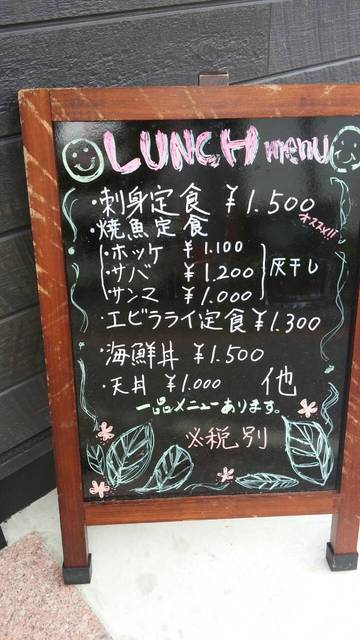 LUNCH menu
・刺身定食 ¥1.500
オススメ!!
・焼魚定食
・ホッケ ¥1.100
・サバ ¥1.200
サンマ ¥1.000
灰干し
・エビラライ定食 ¥1.300
・海鮮丼 ¥1.500
・天丼 ¥1.000 他
一品メニューあります。
※税別